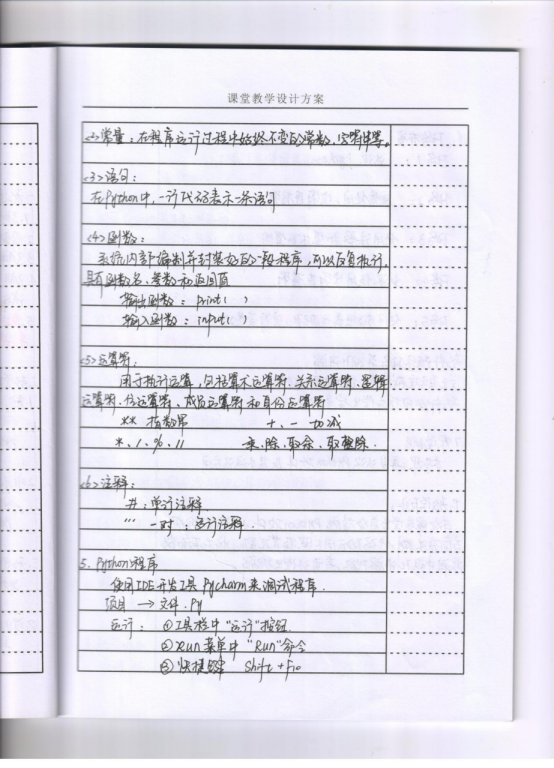 课堂教学设计方案
<2>常量：在程序运行过程中始终不变的常数、字符串等。
<3>语句：
在Python中，一行代码表示一条语句
<4>函数：
系统内部编制并封装好的一段程序，可以反复执行，
函数名、参数和返回值
输出函数：print( )
输入函数：input( )
<5>运算符：
用于执行运算，包括算术运算符、关系运算符、逻辑
运算符、位运算符、成员运算符和身份运算符
** 指数幂 +、- 加减
*、/、%、// 乘、除、取余、取整除.
<6>注释：
#：单行注释
''' 一对：
5. Python程序
使用IDE开发工具Pycharm来调试程序.
项目 → 文件.py
运行：①工具栏中"运行"按钮
②Run菜单中"Run"命令
③快捷键 Shift+F10